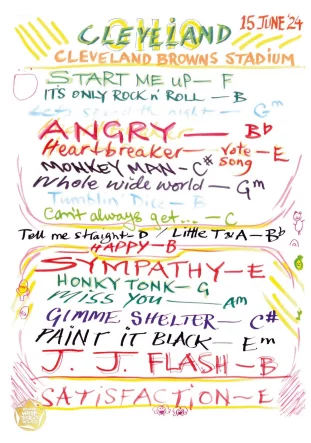 OHIO
CLEVELAND
15 JUNE '24
CLEVELAND BROWNS STADIUM
START ME UP — F
IT'S ONLY ROCK n' ROLL — B
Let's spend the night — Gm
ANGRY — Bb
Heartbreaker — Vote Song — E
MONKEY MAN — C#
Whole wide world — Gm
Tumblin' Dice — B
Can't always get... — C
Tell me straight — D / Little T&A — Bb
HAPPY — B
SYMPATHY — E
HONKY TONK — G
MISS YOU — Am
GIMME SHELTER — C#
PAINT IT BLACK — Em
J. J. FLASH — B
SATISFACTION — E